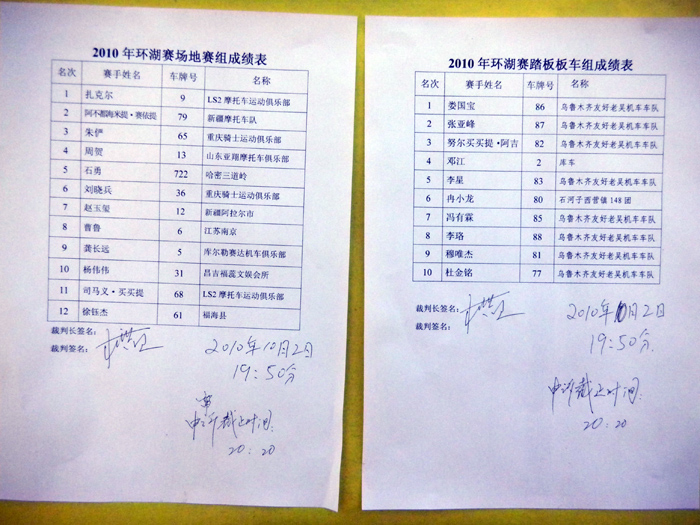 2010 年环湖赛场地赛组成绩表
名次 赛手姓名 车牌号 名称
1 扎克尔 9 LS2 摩托车运动俱乐部
2 阿不都海米提·赛依提 79 新疆摩托车队
3 朱伊 65 重庆骑士运动俱乐部
4 周贺 13 山东亚翔摩托车俱乐部
5 石勇 722 哈密三道岭
6 刘晓兵 36 重庆骑士运动俱乐部
7 赵玉玺 12 新疆阿拉尔市
8 曹鲁 6 江苏南京
9 龚长远 5 库尔勒赛达机车俱乐部
10 杨伟伟 31 昌吉福蕊文娱会所
11 司马义·买买提 68 LS2 摩托车运动俱乐部
12 徐钰杰 61 福海县
裁判长签名:
裁判签名:
2010年10月2日
19:50分
申诉截止时间:
20:20
2010 年环湖赛踏板板车组成绩表
名次 赛手姓名 车牌号 名称
1 娄国宝 86 乌鲁木齐友好老吴机车车队
2 张亚峰 87 乌鲁木齐友好老吴机车车队
3 努尔买买提·阿吉 82 乌鲁木齐友好老吴机车车队
4 邓江 2 库车
5 李星 83 乌鲁木齐友好老吴机车车队
6 冉小龙 80 石河子西营镇 148 团
7 冯有霖 85 乌鲁木齐友好老吴机车车队
8 李珞 88 乌鲁木齐友好老吴机车车队
9 穆唯杰 81 乌鲁木齐友好老吴机车车队
10 杜金铭 77 乌鲁木齐友好老吴机车车队
裁判长签名:
裁判签名:
2010年10月2日
19:50分
申诉截止时间:
20:20